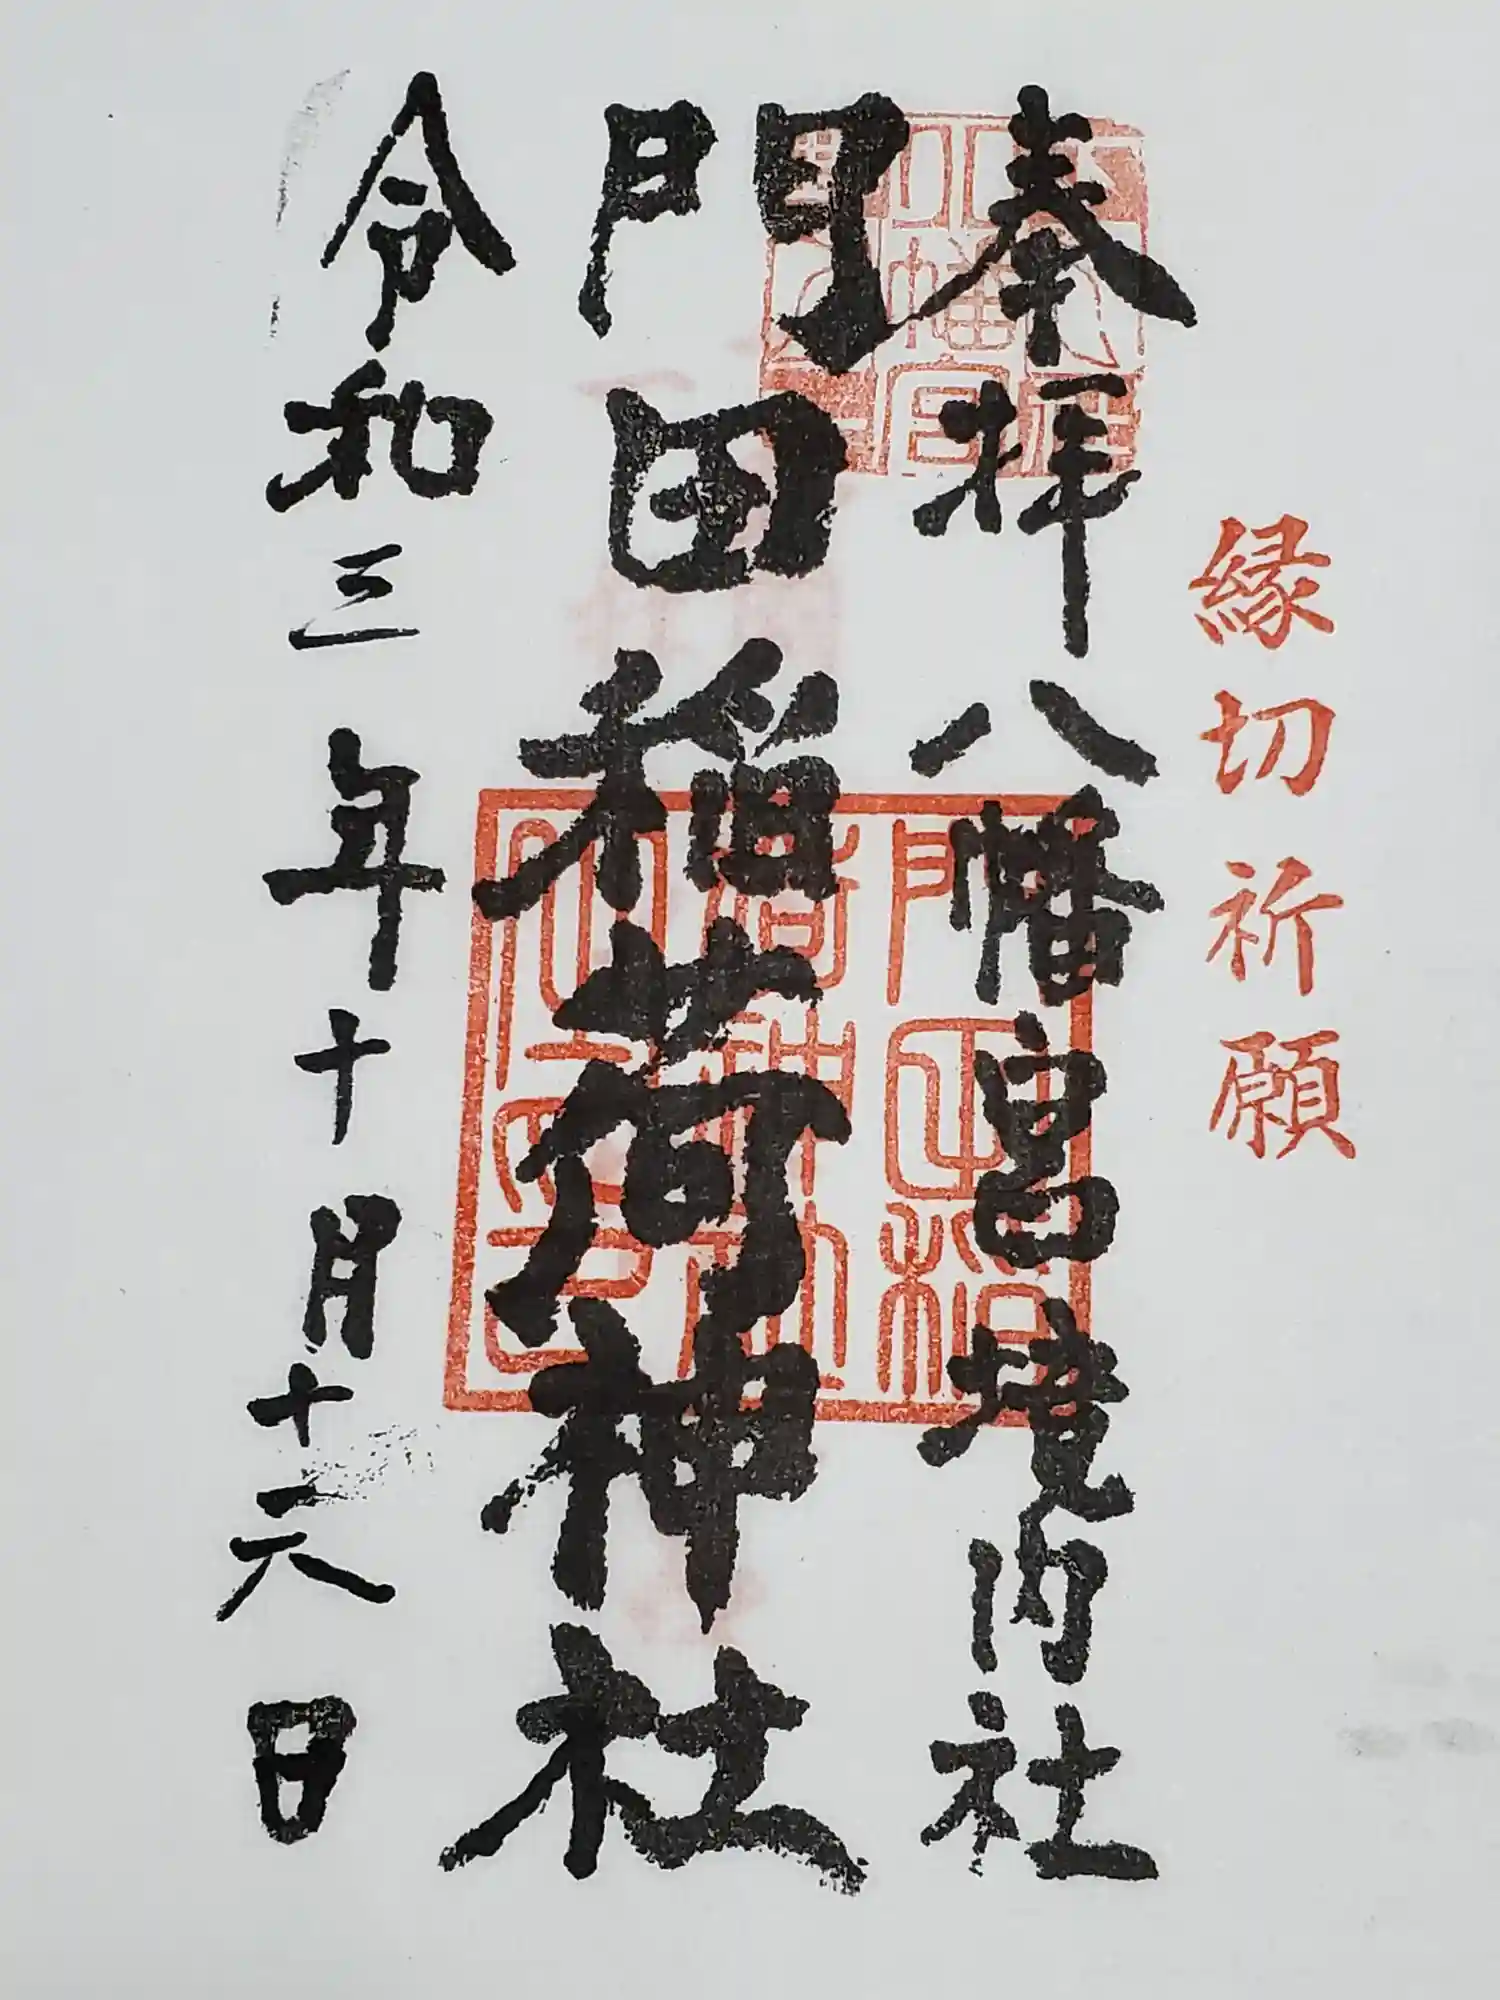 縁切祈願
奉拝八幡宮境内社
門田稲荷神社
令和三年十月十六日